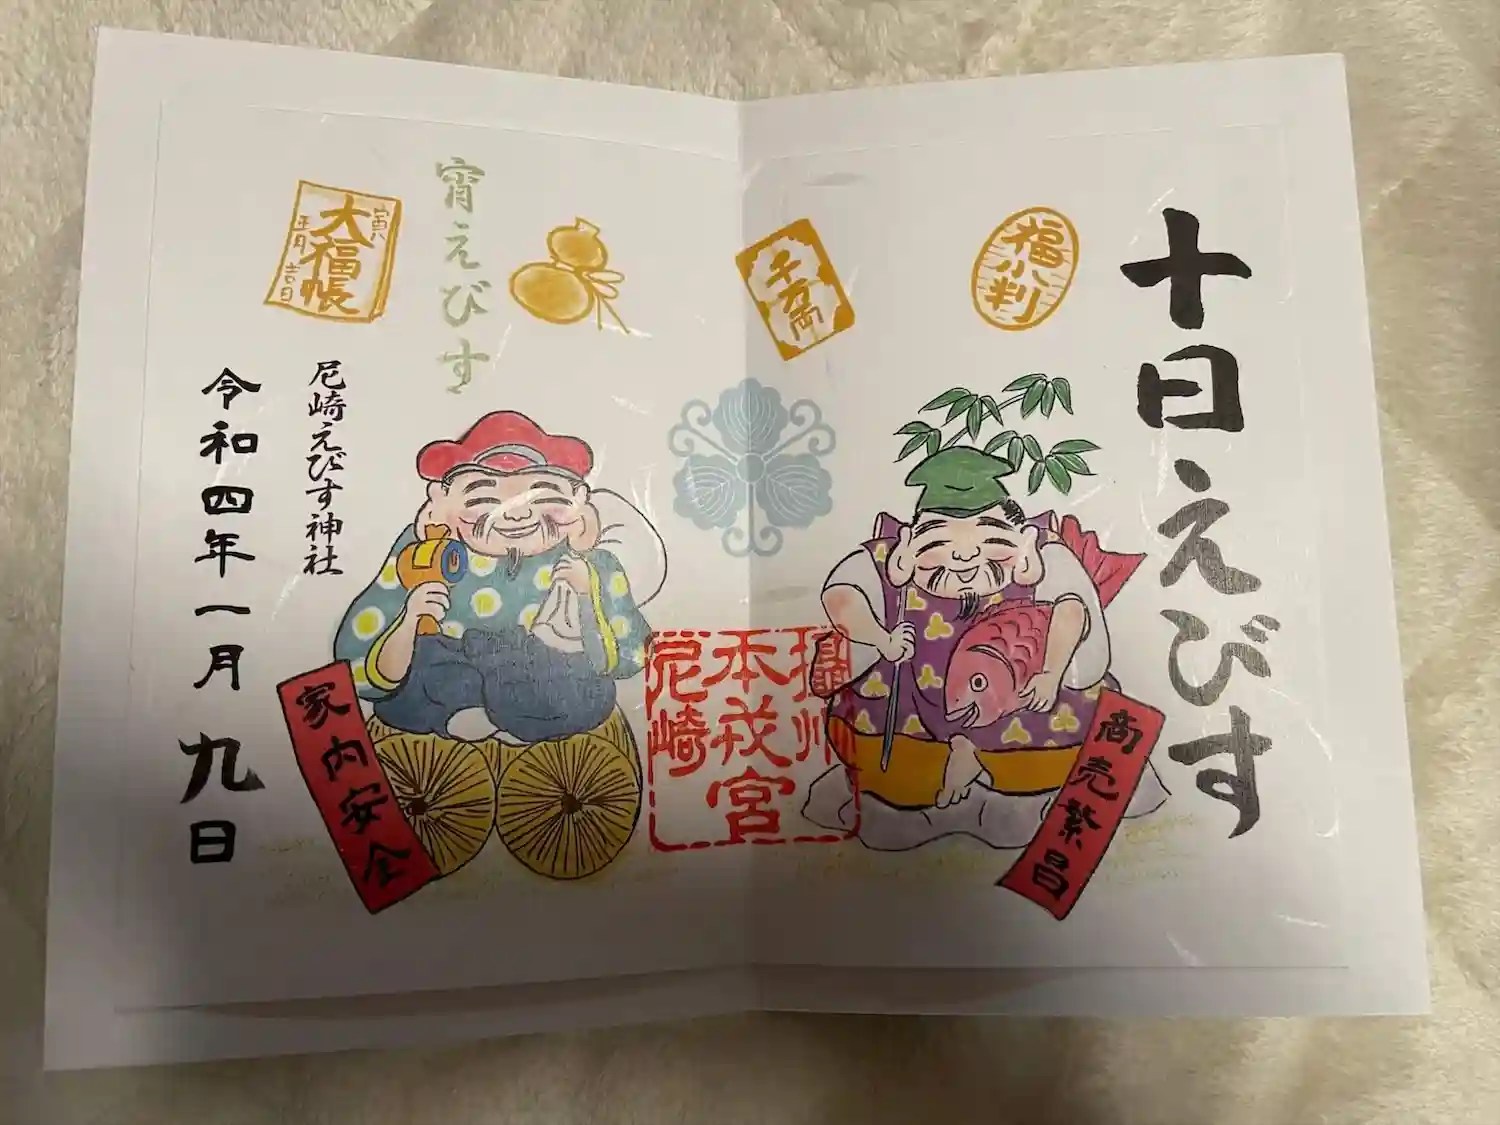 十日えびす
福小判
千万両
商売繁昌
摂州
本戎宮
尼崎
宵えびす
大福帳
寅
正月
吉日
家内安全
尼崎えびす神社
令和四年一月九日